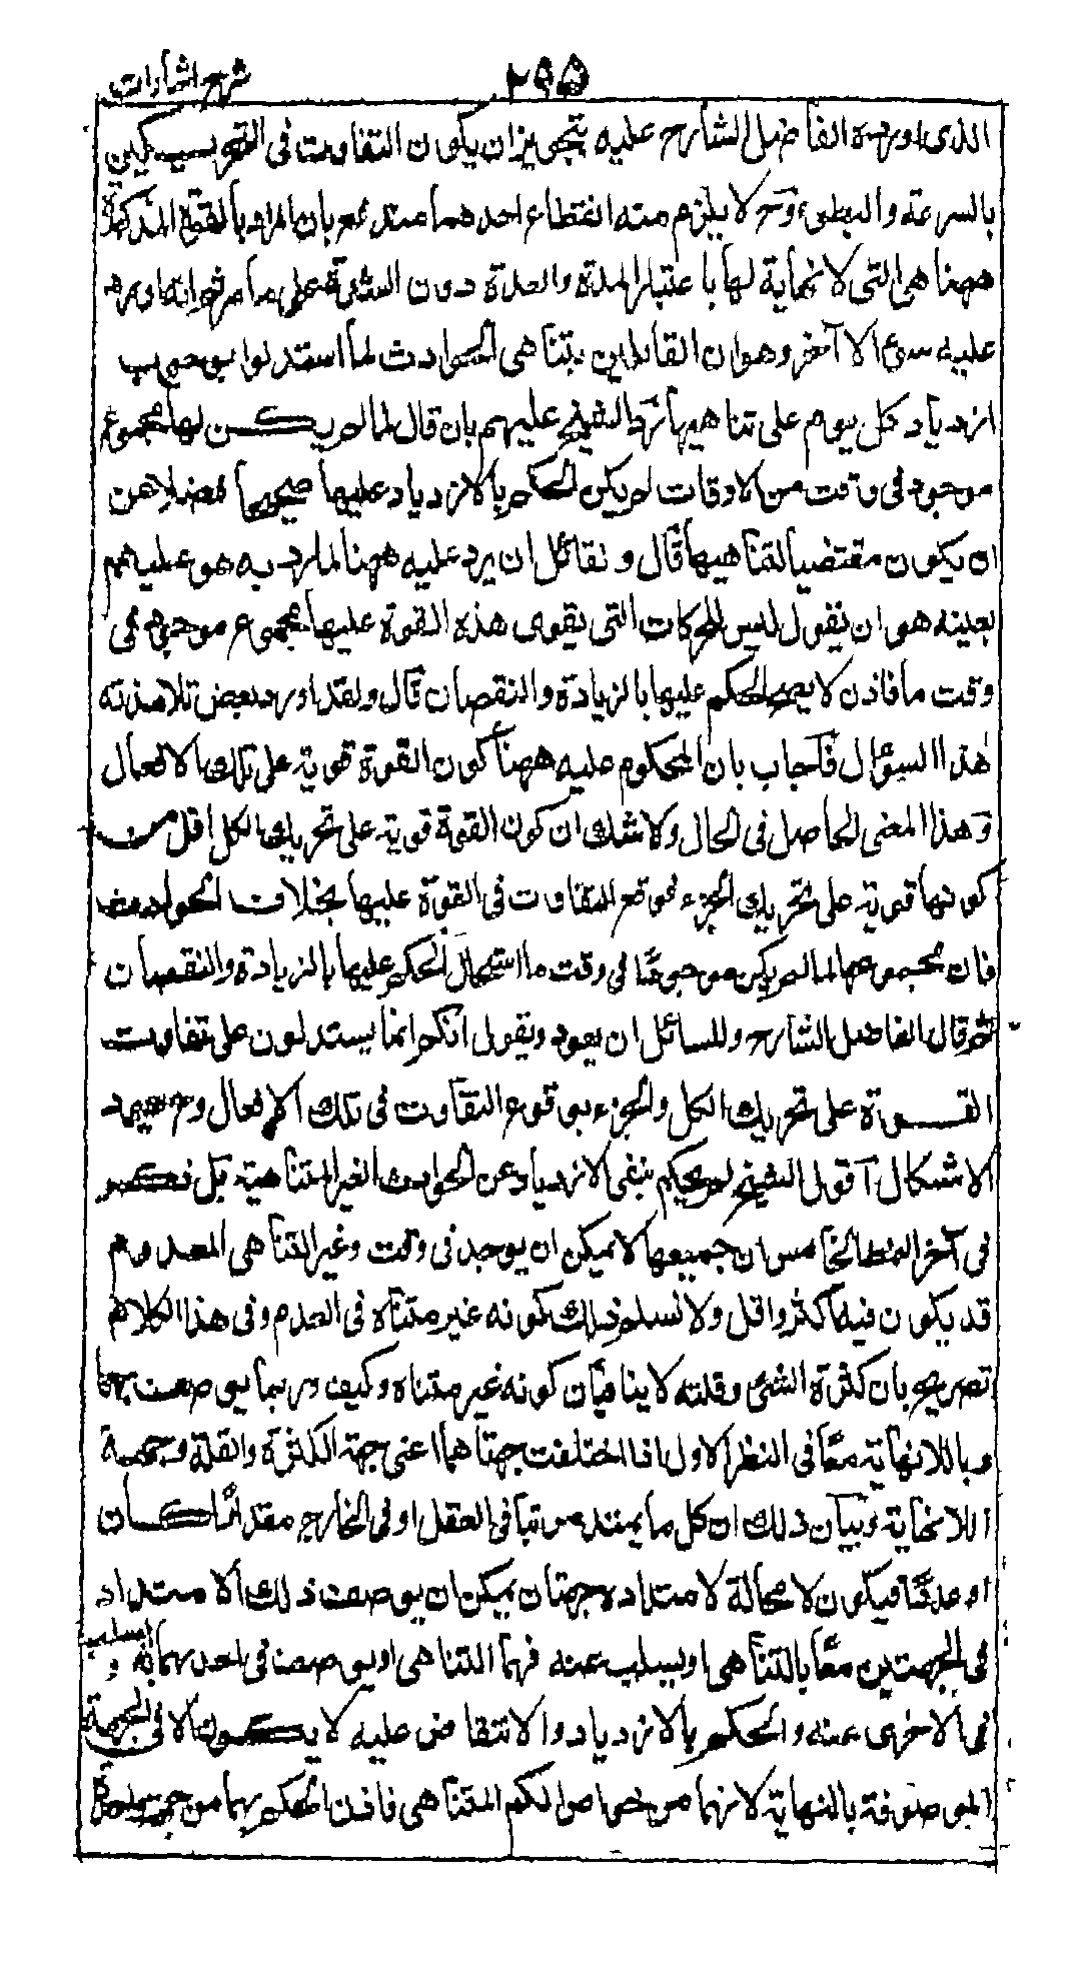 شرح اشارات
٢٩٥
الذى اورده الفاضل الشارح عليه بتجويزان يكون التفاوت فى التحريكين
بالسرعة والبطوء وح لا يلزم منه انقطاع احدهما مندفع بان المراد بالقوة المذكورة
ههنا هى التى لا نهاية لها باعتبار المدة والعدة دون الشدة على ما مر ثم انه اورد
عليه سؤالا آخر وهو ان القائلين بتناهى الحوادث لما استدلوا بوجوب
ازدياد كل يوم على تناهيها رد الشيخ عليهم بان قال لما لم يكن لها مجموع
موجود فى وقت من الاوقات لم يكن الحكم بالازدياد عليها صحيحا فضلا عن
ان يكون مقتضيا لتناهيها قال ولقائل ان يرد عليه ههنا ما رد به هو عليهم
بعينه هو ان يقول ليس للحركات التى يقوى هذه القوة عليها مجموع موجود فى
وقت ما فاذن لا يصح الحكم عليها بالزيادة والنقصان قال ولقد اورد بعض تلامذته
هذا السؤال فاجاب بان المحكوم عليه ههنا كون القوة قوية على تلك الافعال
وهذا المعنى الحاصل فى الحال ولا شك ان كون القوة قوية على تحريك الكل اقل من
كونها قوية على تحريك الجزء فوقع التفاوت فى القوة عليها بخلاف الحوادث
فان مجموعها لما لم يكن موجودا فى وقت ما استحال الحكم عليها بالزيادة والنقصان
ثم قال الفاضل الشارح وللسائل ان يعود ويقول انكم انما يستدلون على تفاوت
القوة على تحريك الكل والجزء بوقوع التفاوت فى تلك الافعال وح يعود
الاشكال اقول الشيخ لم يحكم بنفى الازدياد عن الحوادث الغير المتناهية بل ذكر
فى آخر النمط الخامس ان جميعها لا يمكن ان يوجد فى وقت وغير التناهى المعدوم
قد يكون فيه اكثر واقل ولا نسلم ذلك كونه غير متناه فى العدم وفى هذا الكلام
تصريح بان كثرة الشئ وقلته لا ينافيان كونه غير متناه وكيف وربما يوصف بهما
وباللانهاية معا فى النظر الاول اذا اختلفت جهتاهما اعنى جهة الكثرة والقلة وجهة
اللانهاية وبيان ذلك ان كل ما يمتد مرتبا فى العقل او فى الخارج مقدارا كان
او عددا فيكون لا محالة لامتداده جهتان يمكن ان يوصف ذلك الامتداد
فى الجهتين معا بالتناهى او يسلب عنه فيهما التناهى او يوصف فى احدهما به ويسلب
فى الاخرى عنه والحكم بالازدياد والانتقاص عليه لا يكون الا فى الجهة
الموصوفة بالنهاية لانهما من خواص الكم المتناهى فاذن الحكم بهما من جهة واحدة